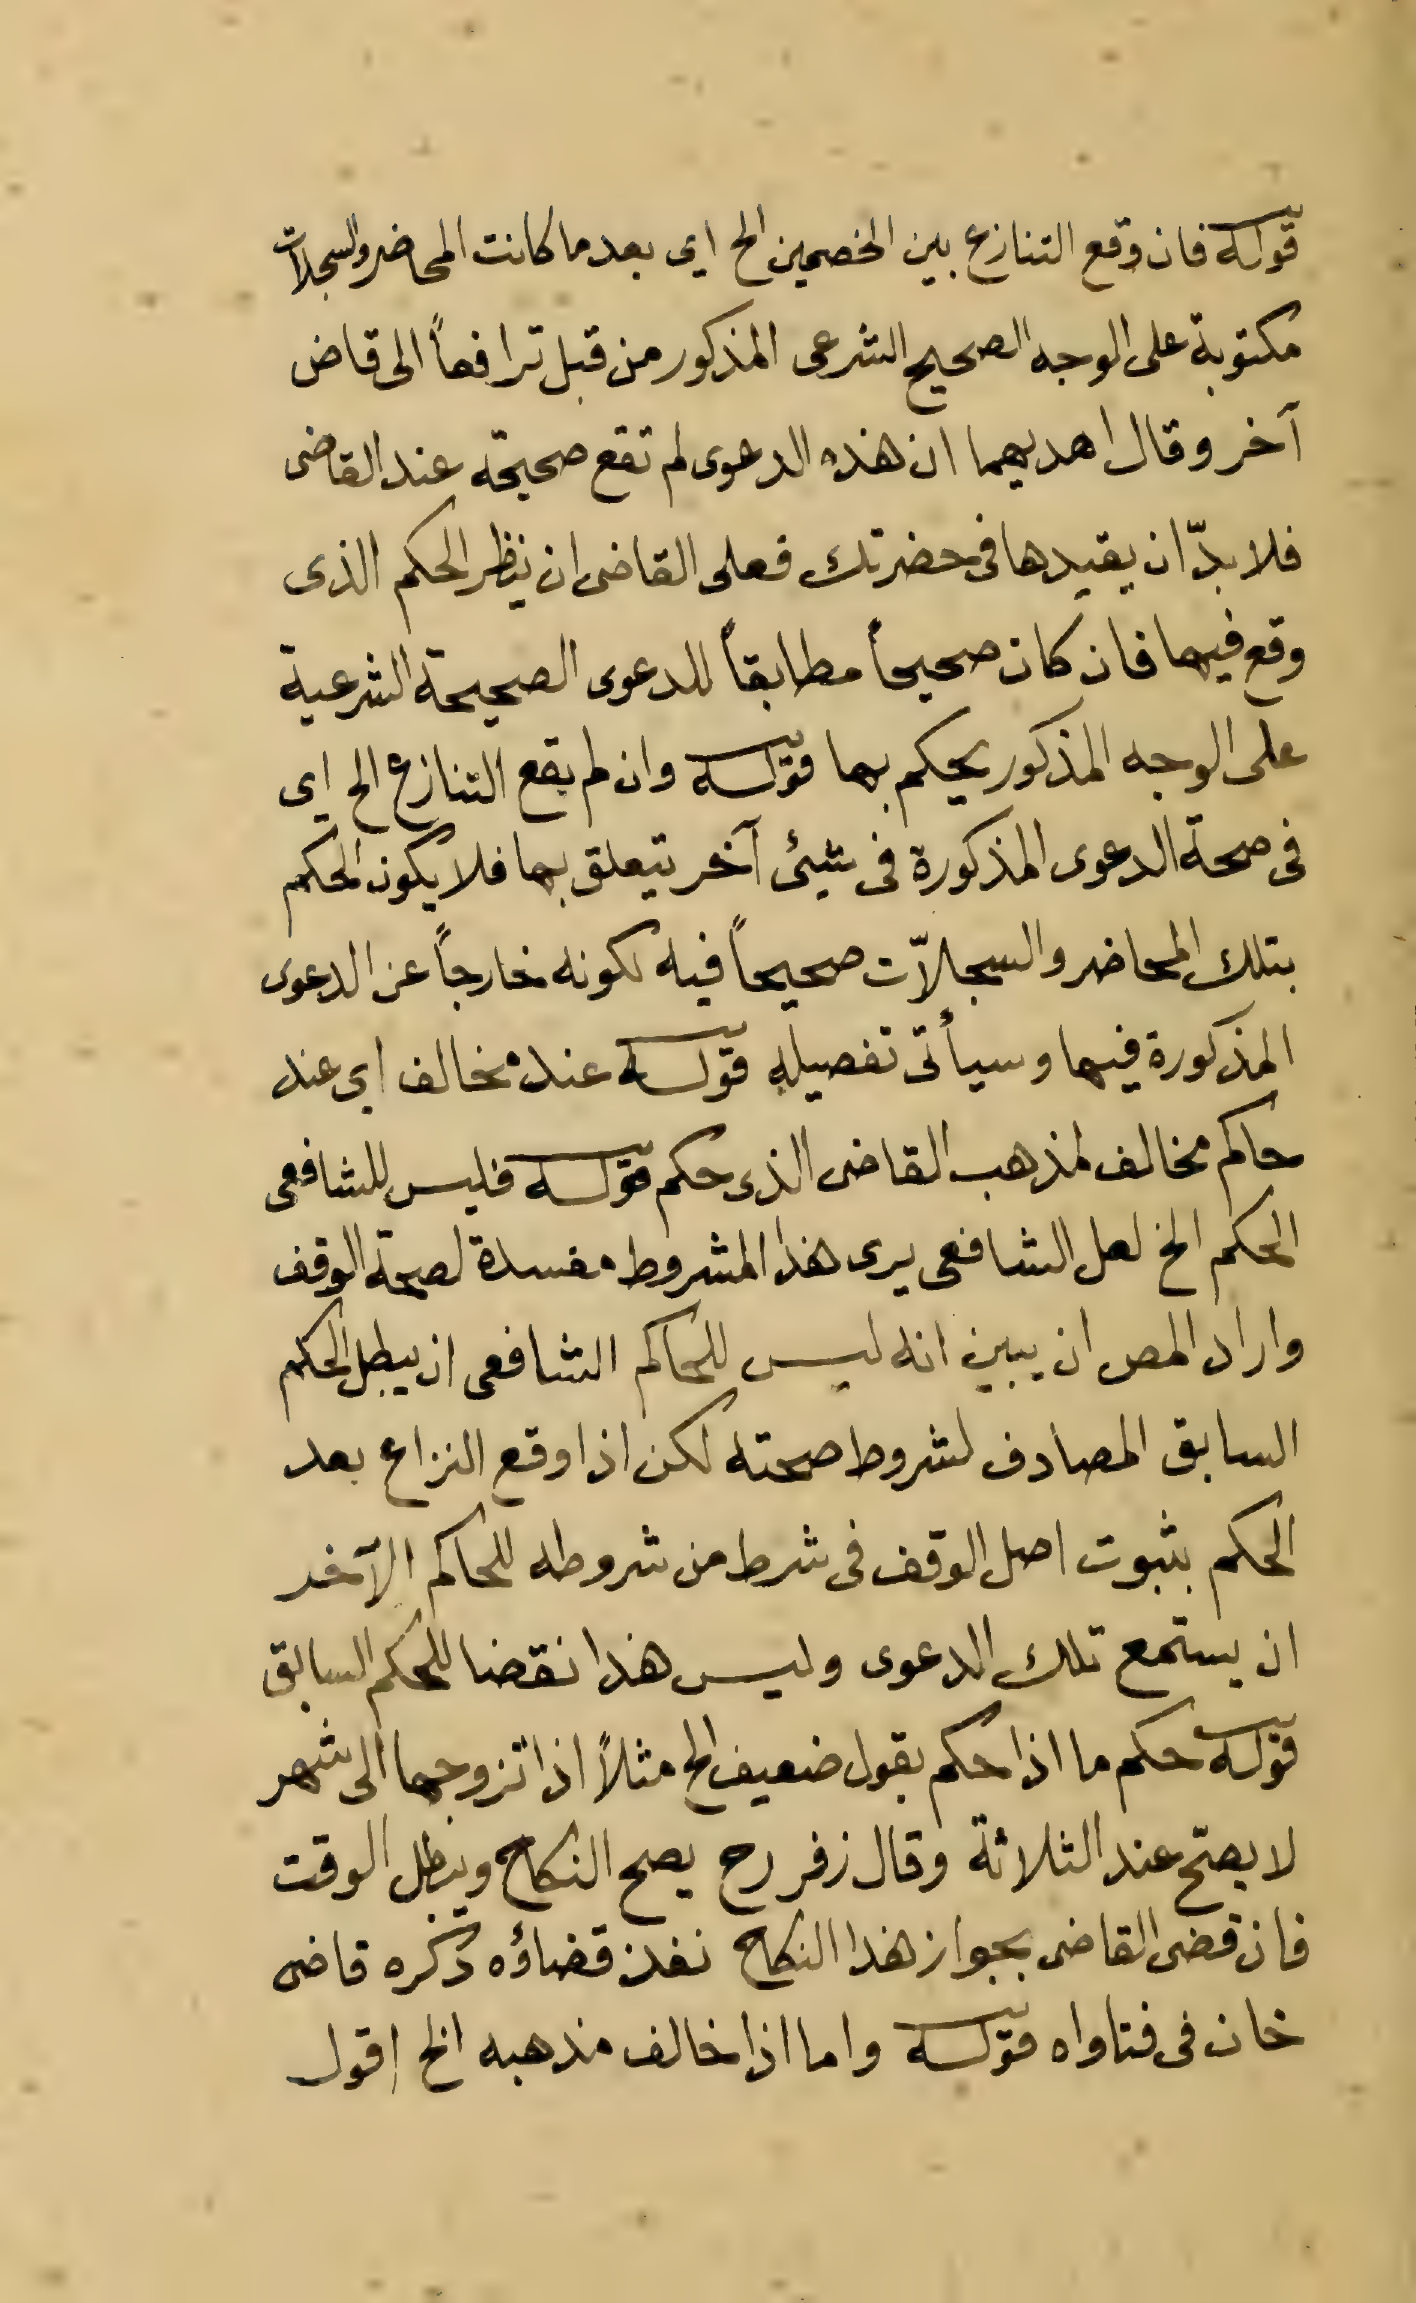 قوله فان وقع التنازع بين الخصمين الخ اى بعد ما كانت المحاضر والسجلات
مكتوبة على الوجه الصحيح الشرعى المذكور من قبل ترافعاً الى قاض
آخر وقال احديهما ان هذه الدعوى لم تقع صحيحة عند القاضى
فلا بدّ ان يقيدها فى حضرتك فعلى القاضى ان ينظر الحكم الذى
وقع فيها فان كان صحيحاً مطابقاً للدعوى الصحيحة الشرعية
على الوجه المذكور يحكم بها قوله وان لم يقع التنازع الخ اى
فى صحة الدعوى المذكورة فى شيئ آخر يتعلق بها فلا يكون الحكم
بتلك المحاضر والسجلاّت صحيحاً فيه لكونه خارجاً عن الدعوى
المذكورة فيها وسيأتى تفصيله قوله عند مخالف اى عند
حاكم مخالف لمذهب القاضى الذى حكم قوله فليس للشافعى
الحكم الخ لعل الشافعى يرى هذا المشروط مفسدة لصحة الوقف
واراد المص ان يبين انه ليس للحاكم الشافعى ان يبطل الحكم
السابق المصادف لشروط صحته لكن اذا وقع النزاع بعد
الحكم بثبوت اصل الوقف فى شرط من شروطه للحاكم الآخر
ان يستمع تلك الدعوى وليس هذا نقضا للحكم السابق
قوله حكم ما اذا حكم بقول ضعيف الخ مثلاً اذا تزوجها الى شهر
لا يصحّ عند الثلاثة وقال زفر رح يصح النكاح ويبطل الوقت
فان قضى القاضى بجواز هذا النكاح نفذ قضاؤه ذكره قاضى
خان فى فتاواه قوله واما اذا خالف مذهبه الخ اقول